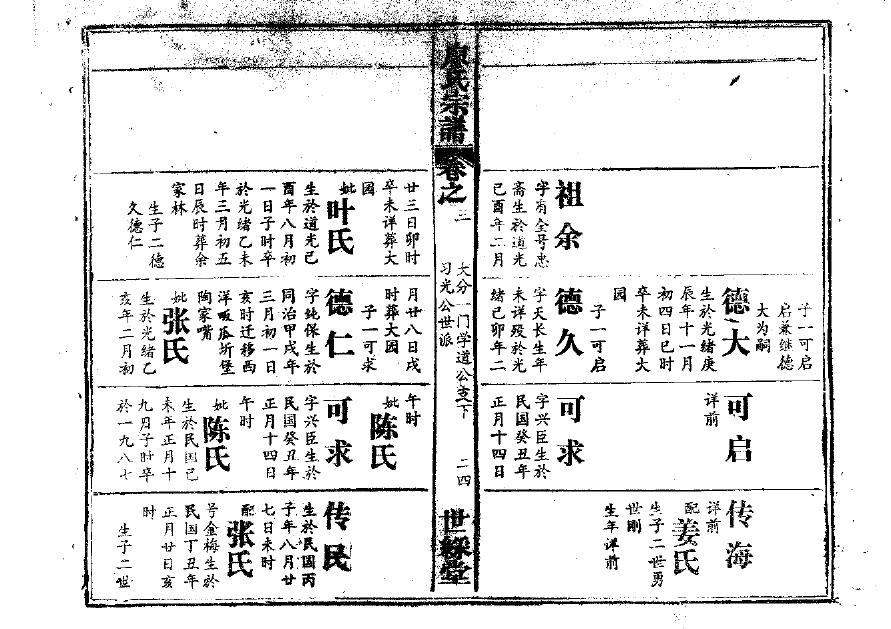 祖余
字有全号忠
斋生於道光
己酉年二月
子一可启
启兼继德
大为嗣
德大
生於光绪庚
辰年十一月
初四日巳时
卒未详葬大
园
子一可启
德久
字天长生年
未详殁於光
绪己卯年二
可启
详前
可求
字兴臣生於
民国癸丑年
正月十四日
传海
详前
配姜氏
生子二世勇
世刚
生年详前
廖氏宗谱
卷之三
大分一门学道公支下
习光公世派
二四
世綵堂
廿三日卯时
卒未详葬大
园
妣叶氏
生於道光己
酉年八月初
一日子时卒
於光绪乙未
年三月初五
日辰时葬余
家林
生子二德
久德仁
月廿八日戌
时葬大园
子一可求
德仁
字纯保生於
同治甲戌年
三月初一日
亥时迁移西
洋畈瓜圻堡
陶家嘴
妣张氏
生於光绪乙
亥年二月初
午时
妣陈氏
可求
字兴臣生於
民国癸丑年
正月十四日
午时
妣陈氏
生於民国己
未年正月十
九月子时卒
於一九八七
传民
生於民国丙
子年八月廿
七日未时
配张氏
号金梅生於
民国丁丑年
正月廿日亥
时
生子二世